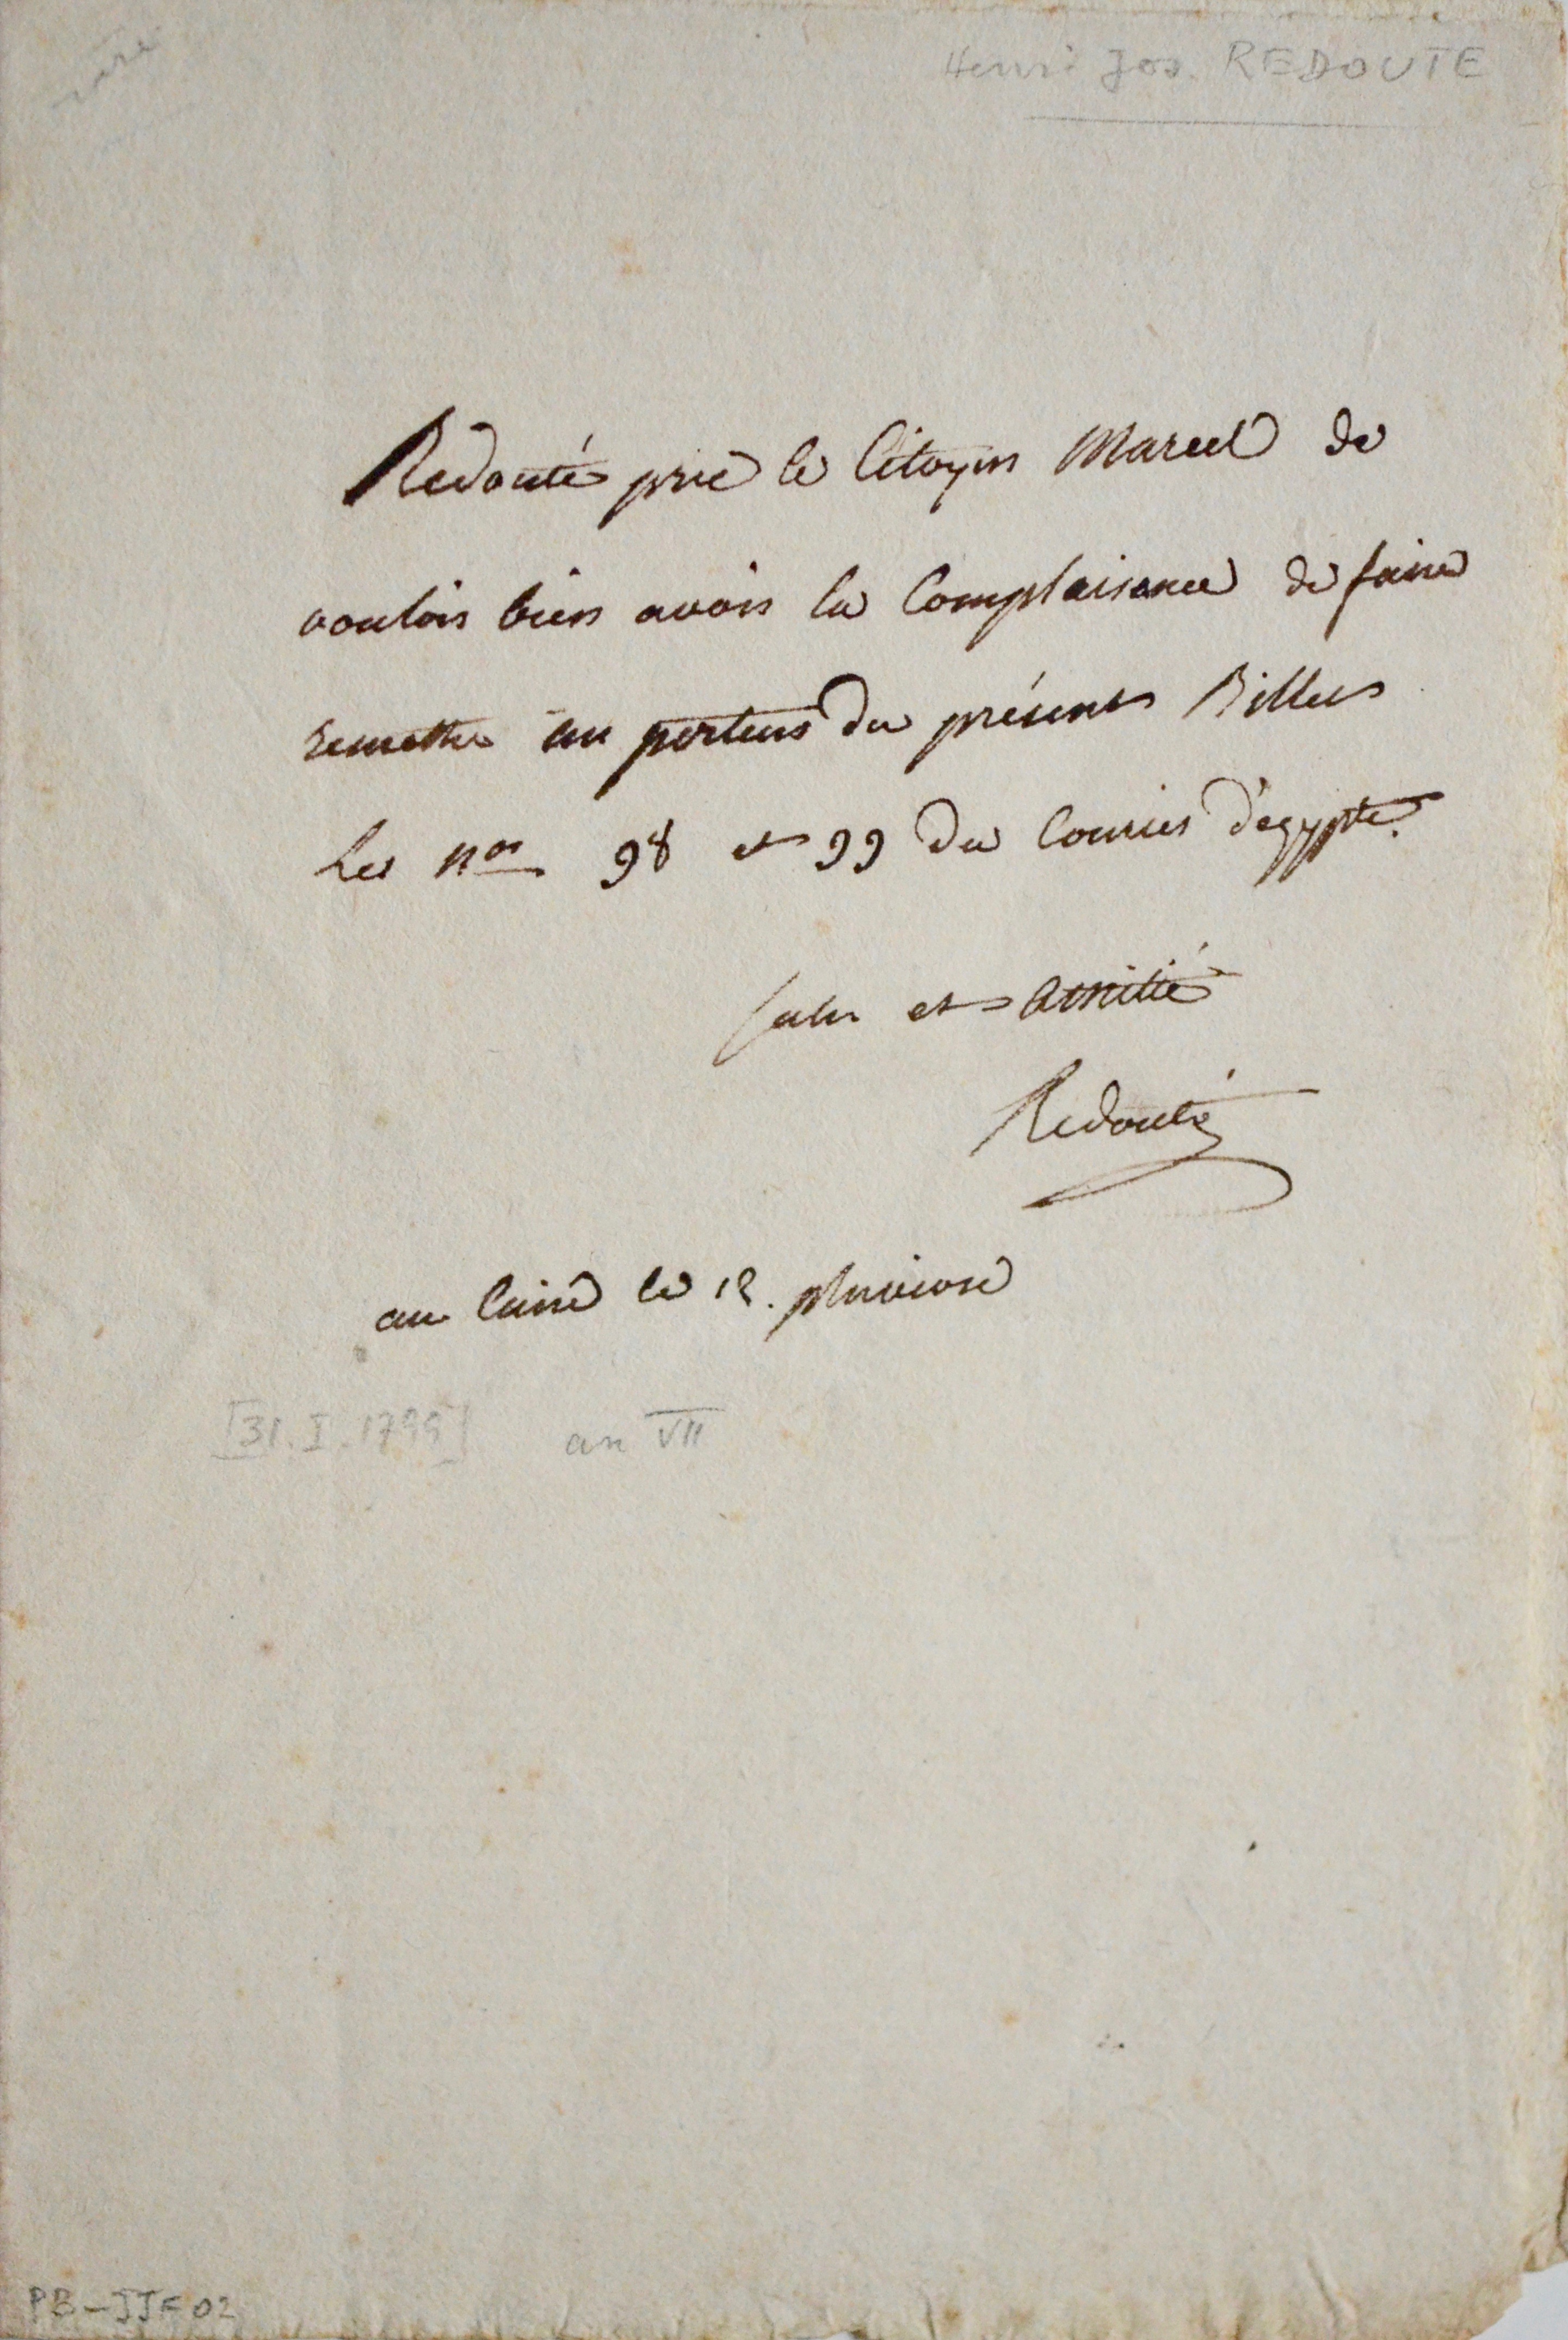 rare
Henri Jos. REDOUTE
Redouté prie le Citoyen Marcel de
vouloir bien avoir la Complaisance de faire
remettre au porteur du présent Billet
Les nos 98 et 99 du Courier d'egypte.
Salut et amitié
Redouté
au Caire le 12. pluviose
[31. I. 1799] an VII
PB-JJF 02